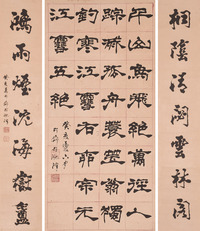 桐陰清閟雲林閣
千山鳥飛絕萬徑人
蹤滅孤舟蓑笠翁獨
釣寒江雪
江雪五絕
癸亥夏六月
雨煙沈海嶽盦